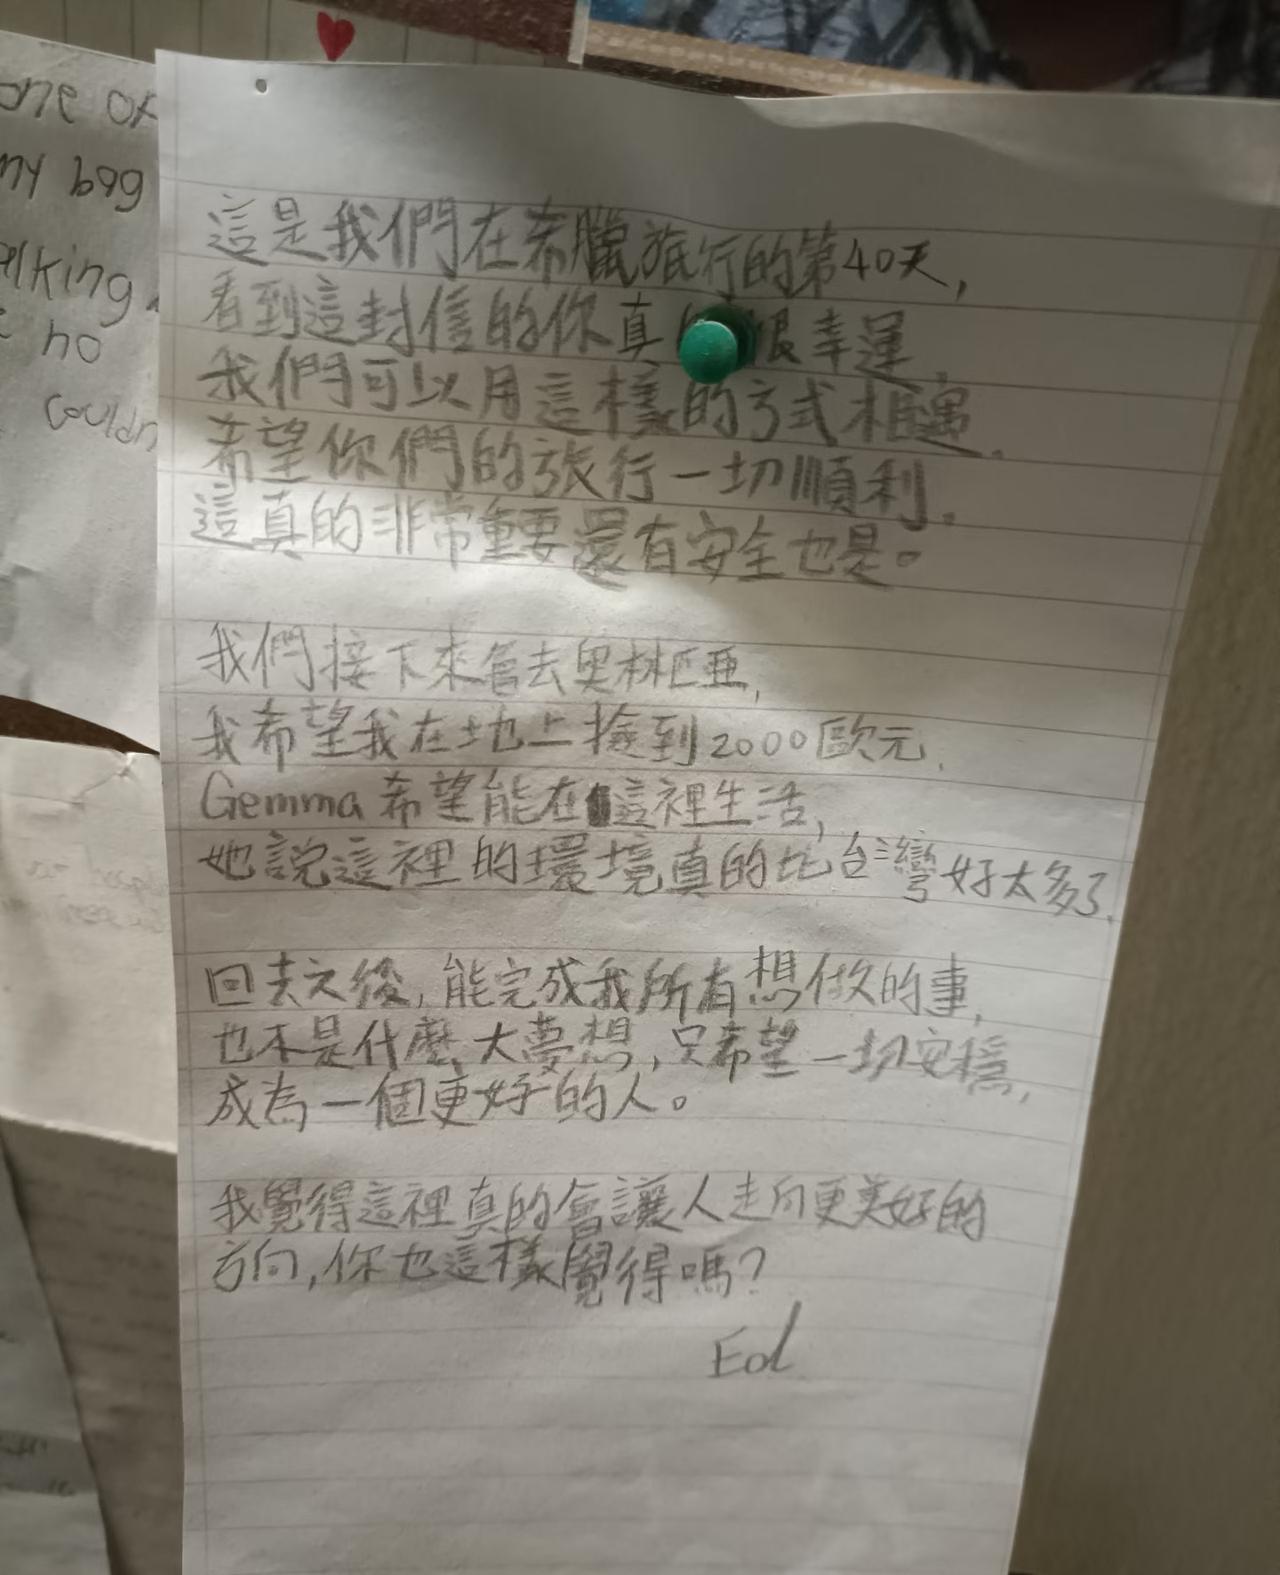 one of
my bag
lking
no
couldn
這是我們在希臘旅行的第40天,
看到這封信的你真 很幸運,
我們可以用這樣的方式相遇.
希望你們的旅行一切順利,
這真的非常重要還有安全也是。
我們接下來會去奧林匹亞,
我希望我在地上撿到2000歐元,
Gemma希望能在這裡生活,
她說這裡的環境真的比台灣好太多了.
回去之後,能完成我所有想做的事,
也不是什麼大夢想,只希望一切安穩,
成為一個更好的人。
我覺得這裡真的會讓人走向更美好的
方向,你也這樣覺得嗎?
Ed